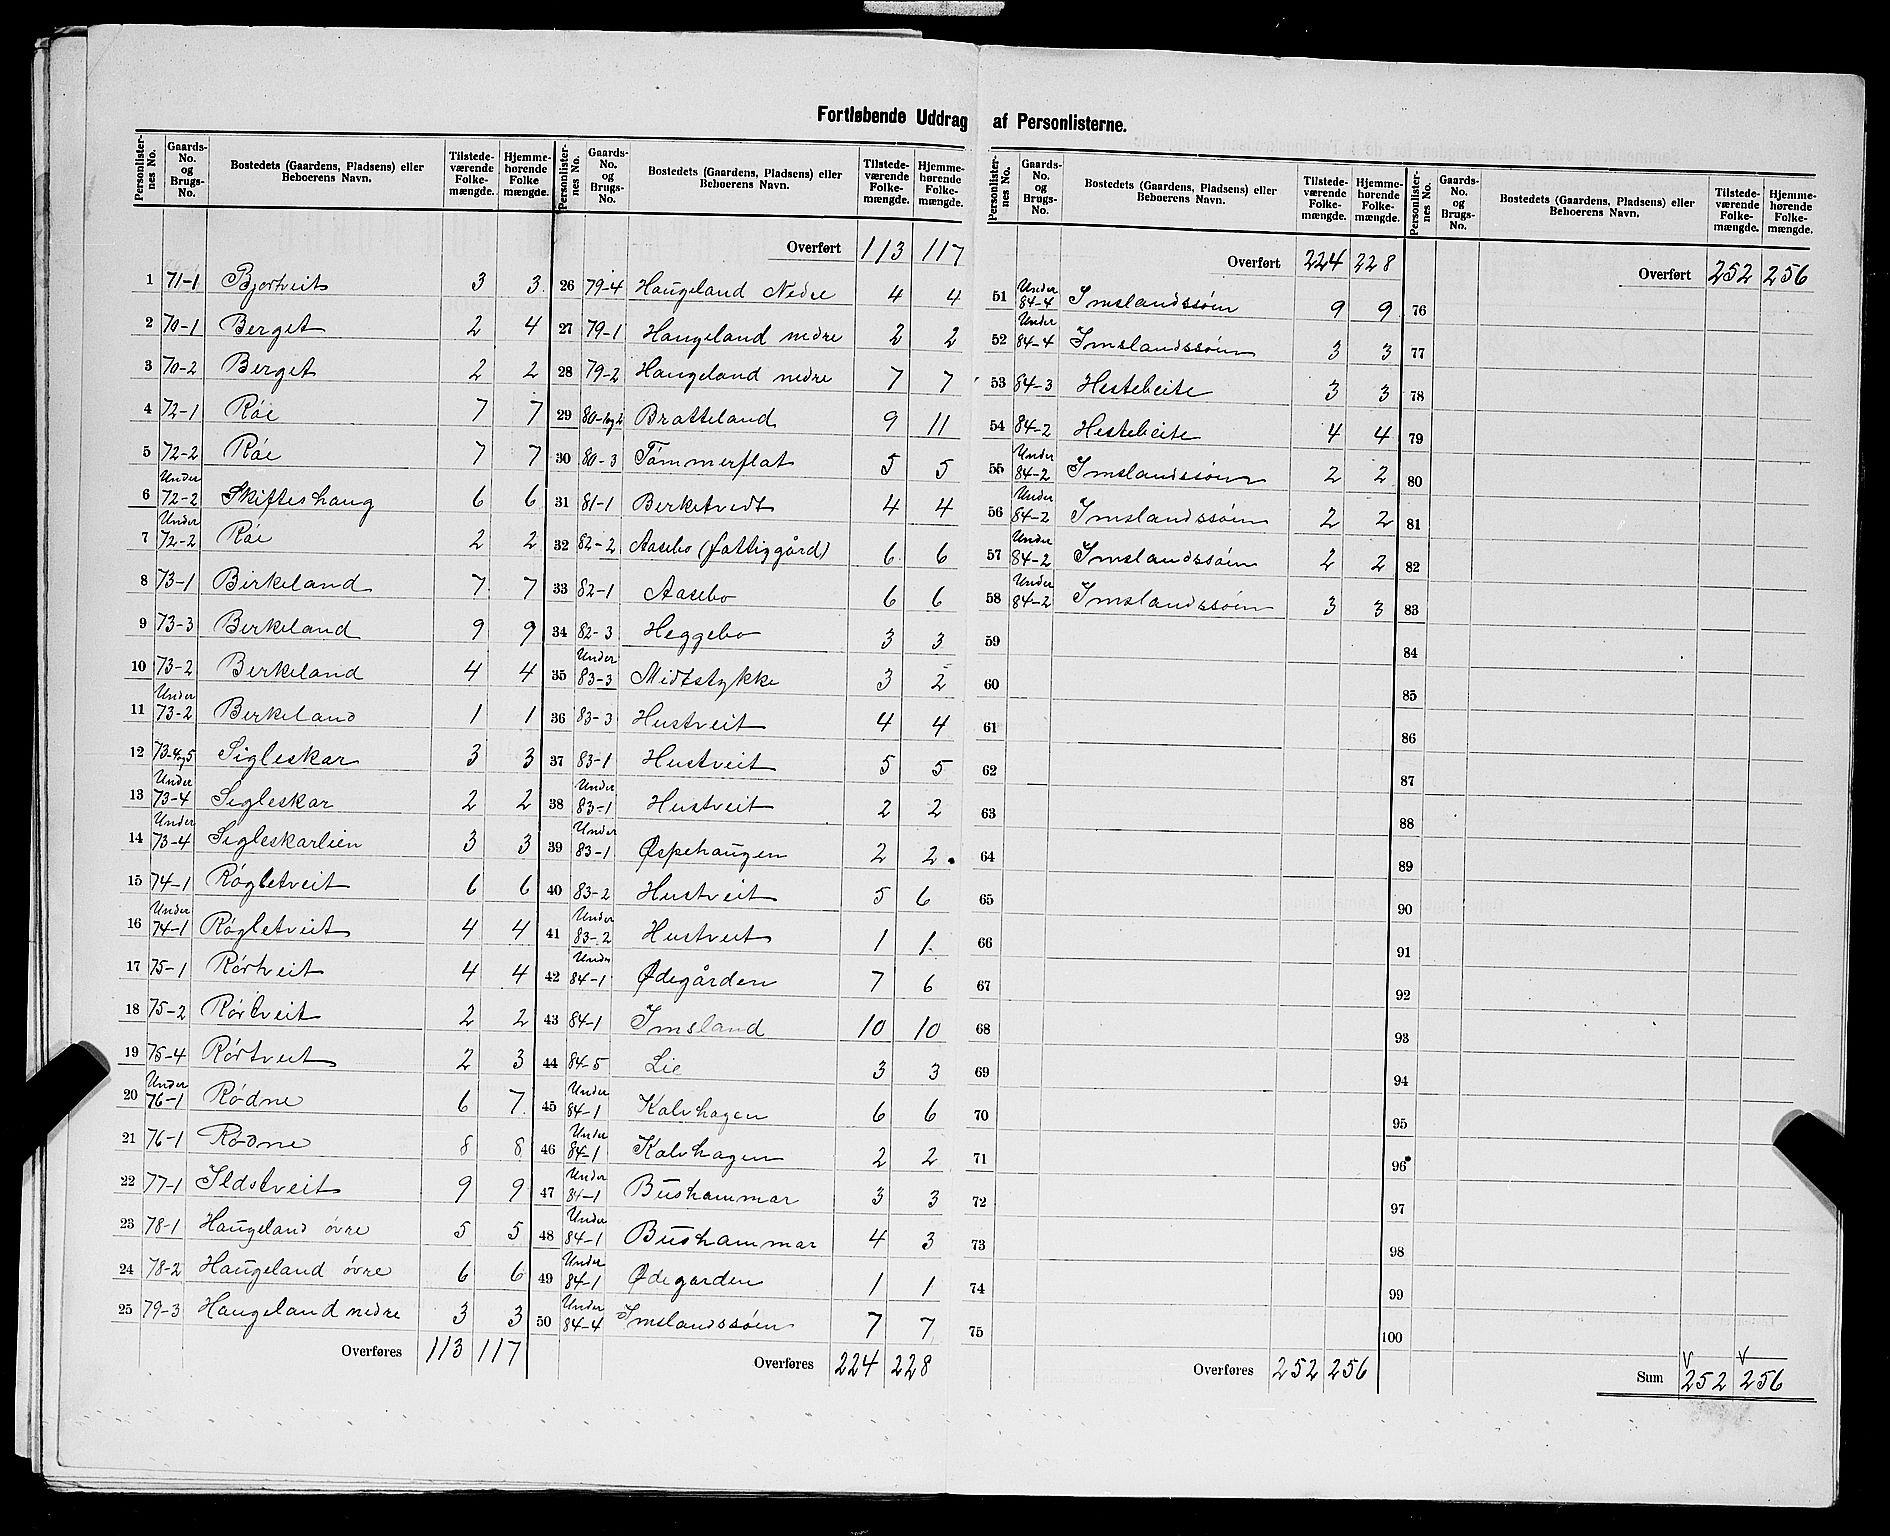 Fortløbende Uddrag af Personlisterne.
Personlisternes No. | Gaards-No. og Brugs-No. | Bostedets (Gaardens, Pladsens) eller Beboerens Navn. | Tilstedeværende Folkemængde. | Hjemmehørende Folkemængde.
1 71-1 Bjortveit 3 3
2 70-1 Berget 2 4
3 70-2 Berget 2 2
4 72-1 Røe 7 7
5 72-2 Røe 7 7
6 Under 72-2 Skifteshaug 6 6
7 Under 72-2 Røe 2 2
8 73-1 Birkeland 7 7
9 73-3 Birkeland 9 9
10 73-2 Birkeland 4 4
11 Under 73-2 Birkeland 1 1
12 73-4og5 Sigleskar 3 3
13 Under 73-4 Sigleskar 2 2
14 Under 73-4 Sigleskarlien 3 3
15 74-1 Røgletveit 6 6
16 Under 74-1 Røgletveit 4 4
17 75-1 Rørtveit 4 4
18 75-2 Rørtveit 2 2
19 75-4 Rørtveit 2 3
20 Under 76-1 Rødne 6 7
21 76-1 Rødne 8 8
22 77-1 Ildstveit 9 9
23 78-1 Haugeland øvre 5 5
24 78-2 Haugeland øvre 6 6
25 79-3 Haugeland nedre 3 3
Overføres 113 117
Personlisternes No. | Gaards-No. og Brugs-No. | Bostedets (Gaardens, Pladsens) eller Beboerens Navn. | Tilstedeværende Folkemængde. | Hjemmehørende Folkemængde.
Overført 113 117
26 79-4 Haugeland Nedre 4 4
27 79-1 Haugeland nedre 2 2
28 79-2 Haugeland nedre 7 7
29 80-1og2 Bratteland 9 11
30 80-3 Tømmerflat 5 5
31 81-1 Berketvedt 4 4
32 82-2 Aasebo (fattiggård) 6 6
33 82-1 Aasebo 6 6
34 82-3 Heggebo 3 3
35 Under 83-3 Midtstykke 3 2
36 83-3 Hustveit 4 4
37 83-1 Hustveit 5 5
38 Under 83-1 Hustveit 2 2
39 Under 83-1 Øspehaugen 2 2
40 83-2 Hustveit 5 6
41 Under 83-2 Hustveit 1 1
42 Under 84-1 Ødegården 7 6
43 84-1 Imsland 10 10
44 84-5 Lie 3 3
45 Under 84-1 Kalvhagen 6 6
46 Under 84-1 Kalvhagen 2 2
47 Under 84-1 Bushammar 3 3
48 Under 84-1 Bushammar 4 3
49 Under 84-1 Ødegarden 1 1
50 Under 84-4 Imslandssøen 7 7
Overføres 224 228
Personlisternes No. | Gaards-No. og Brugs-No. | Bostedets (Gaardens, Pladsens) eller Beboerens Navn. | Tilstedeværende Folkemængde. | Hjemmehørende Folkemængde.
Overført 224 228
51 Under 84-4 Imslandssøen 9 9
52 Under 84-4 Imslandssøen 3 3
53 84-3 Hestebeite 3 3
54 84-2 Hestebeite 4 4
55 Under 84-2 Imslandssøen 2 2
56 Under 84-2 Imslandssøen 2 2
57 Under 84-2 Imslandssøen 2 2
58 Under 84-2 Imslandssøen 3 3
59
60
61
62
63
64
65
66
67
68
69
70
71
72
73
74
75
Overføres 252 256
Personlisternes No. | Gaards-No. og Brugs-No. | Bostedets (Gaardens, Pladsens) eller Beboerens Navn. | Tilstedeværende Folkemængde. | Hjemmehørende Folkemængde.
Overført 252 256
76
77
78
79
80
81
82
83
84
85
86
87
88
89
90
91
92
93
94
95
96
97
98
99
100
Sum 252 256